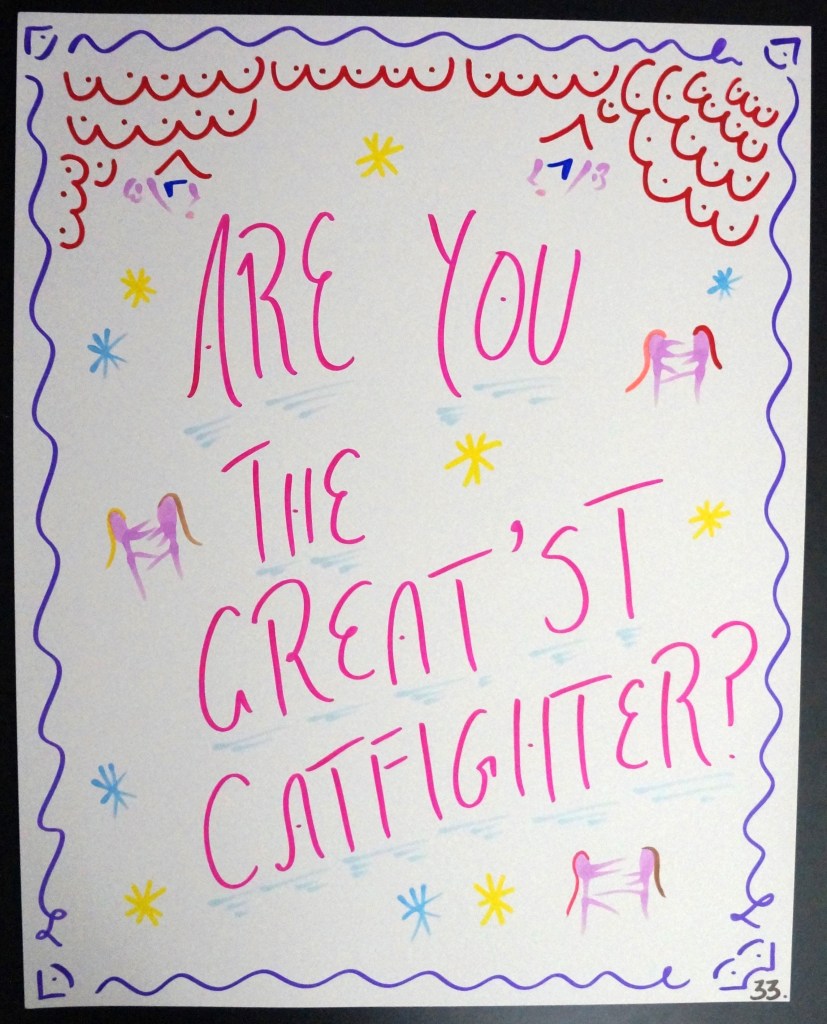 ARE YOU
THE
GREAT'ST
CATFIGHTER?
33.